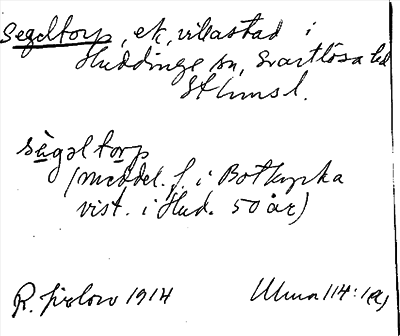 Segeltorp, ek, villastad i
Huddinge sn, Svartlösa hd
Sthmsl.
sègəl torp
(meddel. f. i Botkyrka
vist. i Hud. 50 år)
R. 1914 Ulma 114:1(a)